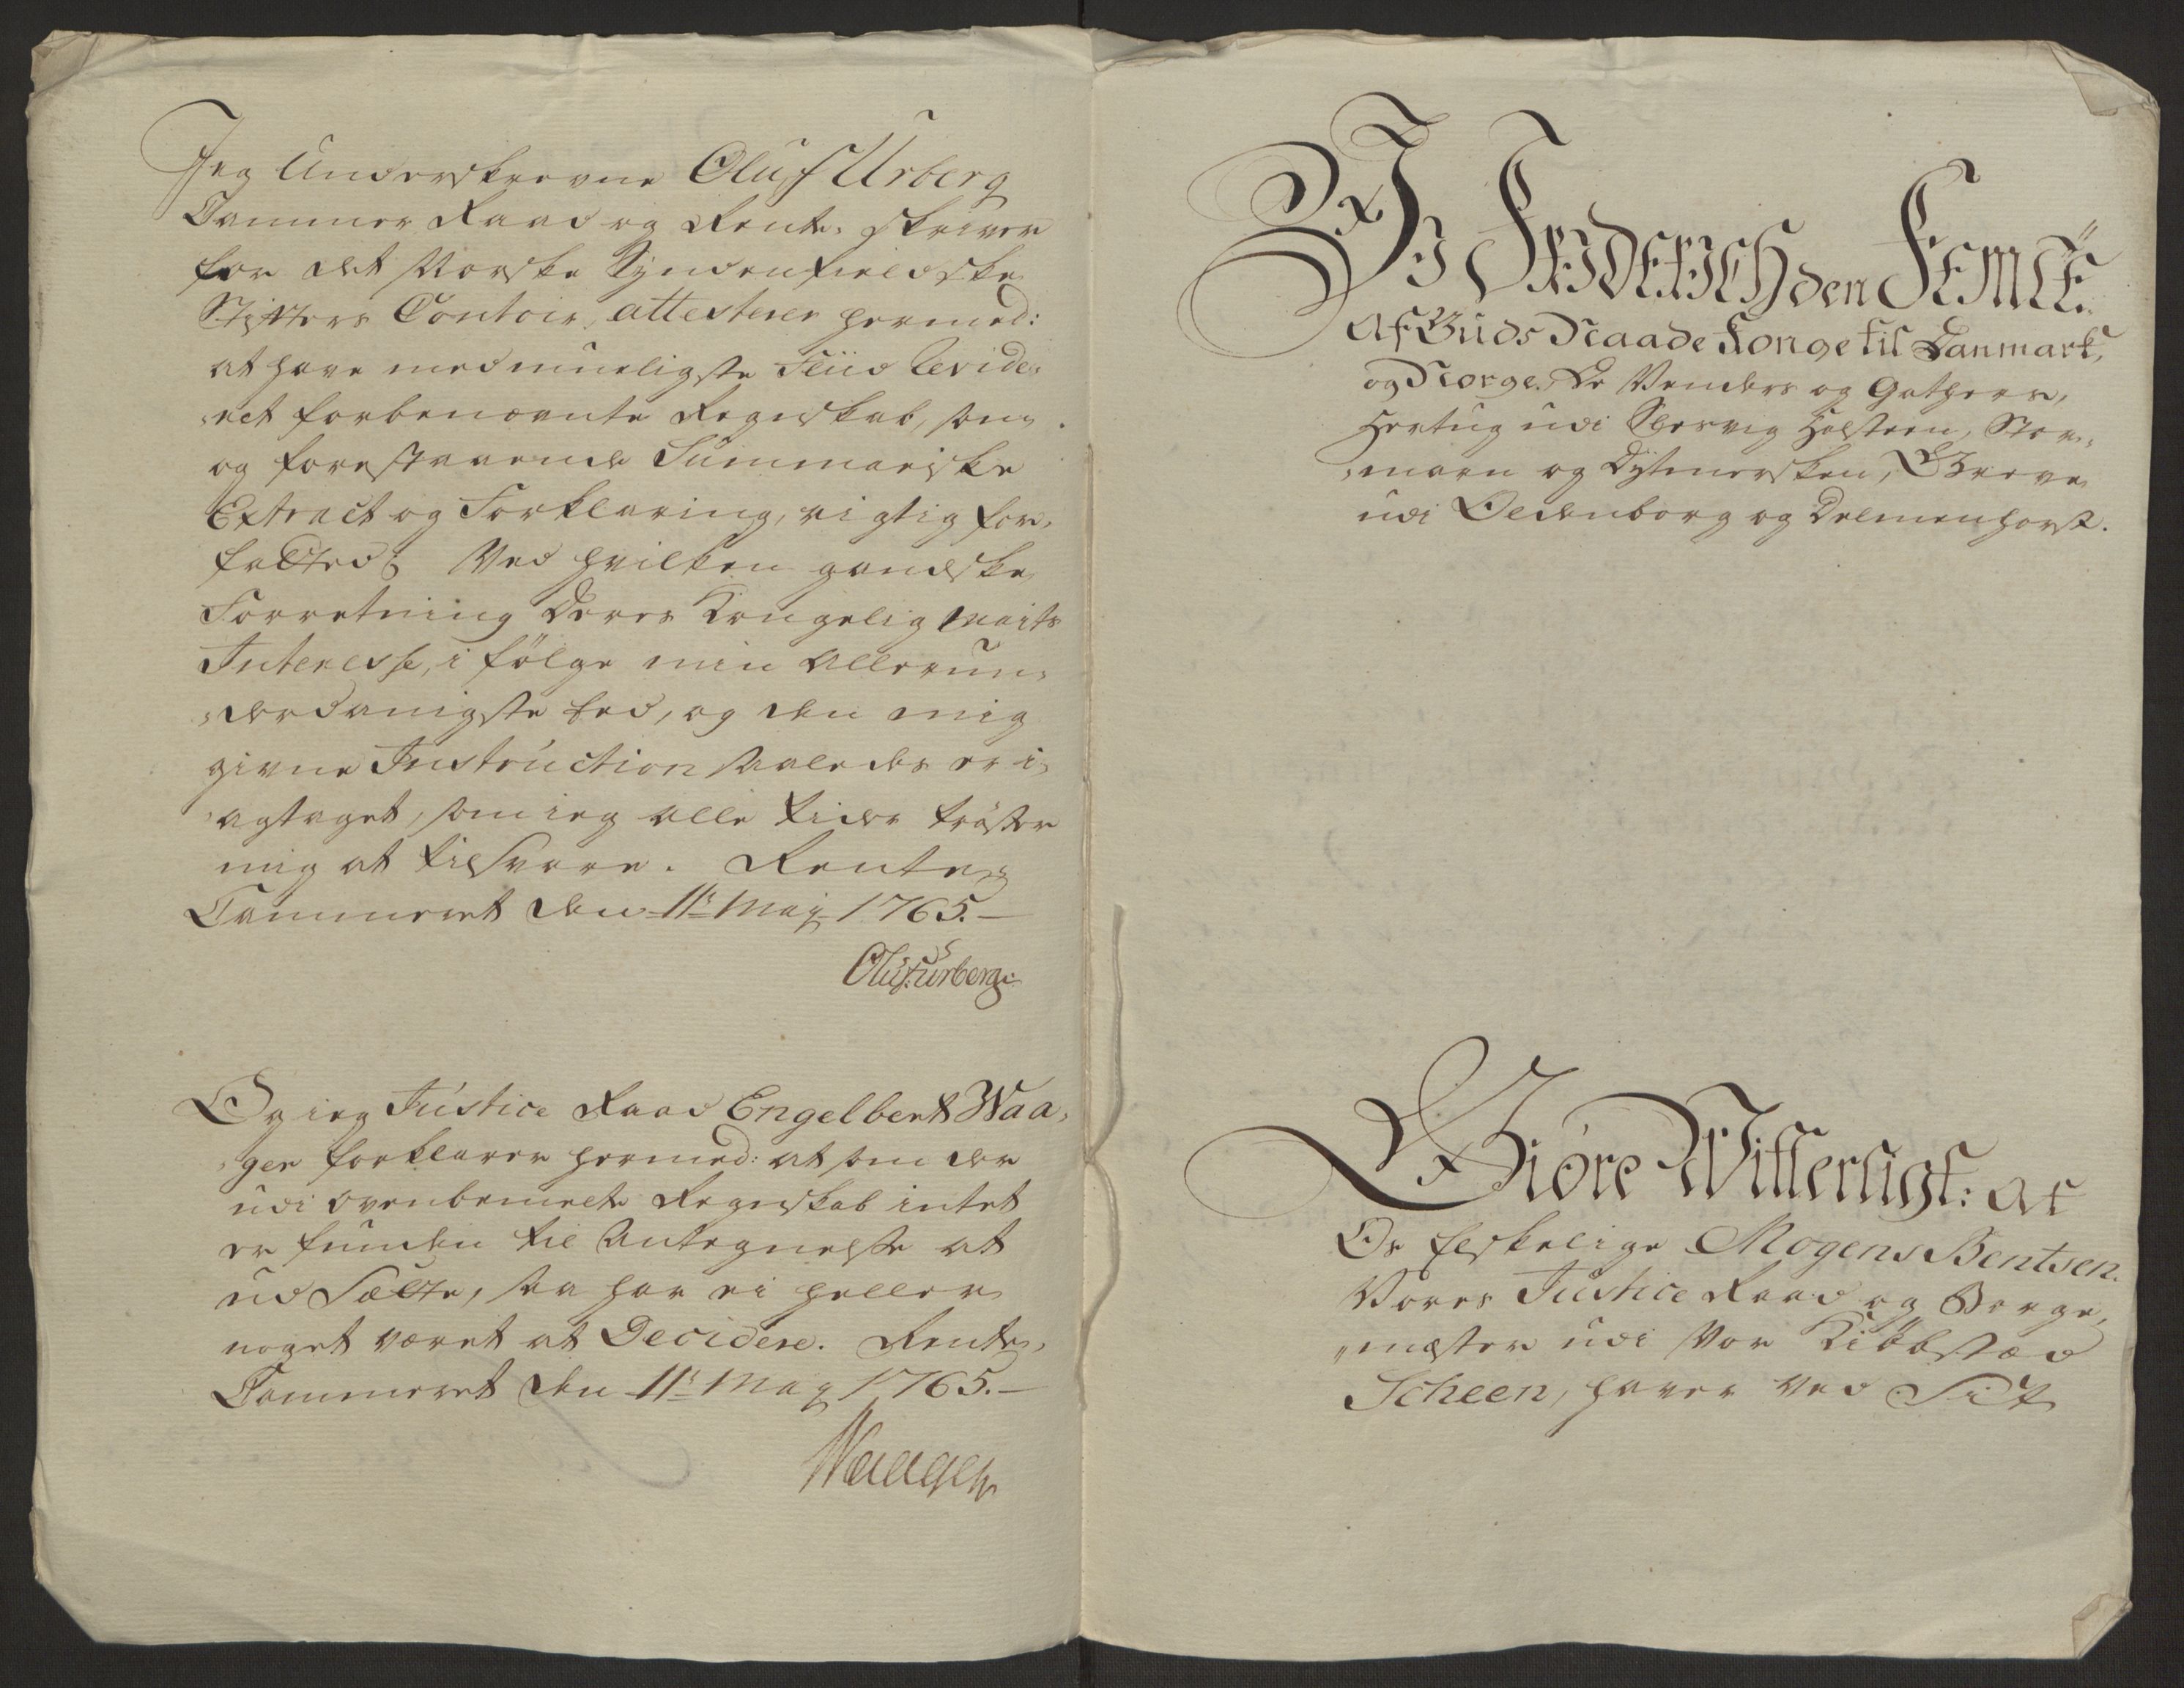 Jeg Underskrevne Oluf Urberg
Cammer Raad og Rente- skriver
for det Norske Syndenfieldske
Stifters Contoir, attesterer hermed:
at have med mueligste Fliid Revide-
-ret forbenævnte Regnskab, som
og forestaaende Summariske
Extract og Forklaring, rigtig for-
fatted; Ved hvilken gandske
Forretning Deres Kongelig Maits
Interesse, i følge min allerun-
-derdanigste Eed, og den mig
givne Instruction saaledes er i-
-agtaget, som ieg alle tider trøster
mig at tilsvare. Rente-
Cammeret den 11te Maÿ 1765.—
Oluf Urberg
Og ieg Justice Raad Engelbert Waa-
-ger forklarer hermed: at som der
udi ovenbemelte Regnskab intet
er funden til Antegnelse at
ud Sætte, saa har ei heller
noget været at Decidere. Rente-
Cammeret den 11te Maÿ 1765.—
Waager
Vi Friderich den Femte
Af Guds Naade Konge til Danmark,
og Norge, De Venders og Gothers,
Hertug udi Slesvig Holsteen, Stor-
-marn og Dytmersken, Greve
udi Oldenborg og Delmenhorst.
Giøre Witterligt: at
Os elskelige Mogens Bentsen.
Vores Justice Raad og Borge-
-mester udi Vor Kiøbstæd
Scheen, haver ved Sit